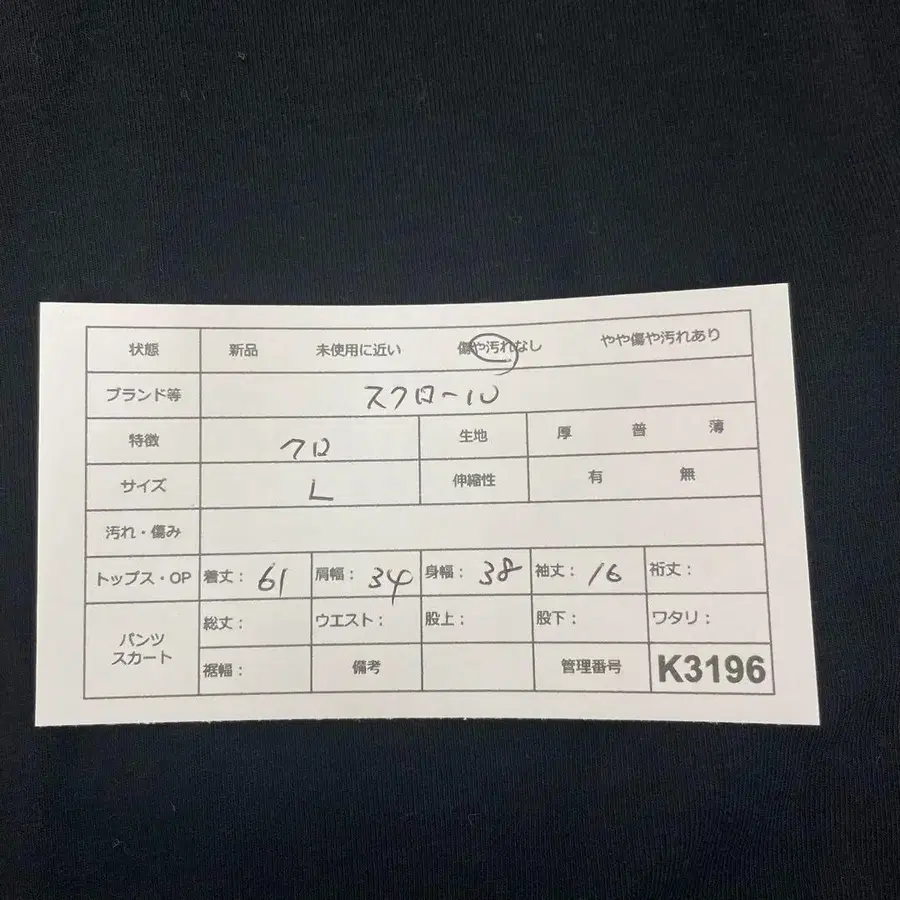 状態 新品 未使用に近い 傷や汚れなし やや傷や汚れあり
ブランド等 スクロール
特徴 クロ 生地 厚 普 薄
サイズ L 伸縮性 有 無
汚れ・傷み
トップス・OP 着丈: 61 肩幅: 34 身幅: 38 袖丈: 16 裄丈:
パンツ スカート 総丈: ウエスト: 股上: 股下: ワタリ:
裾幅: 備考 管理番号 K3196